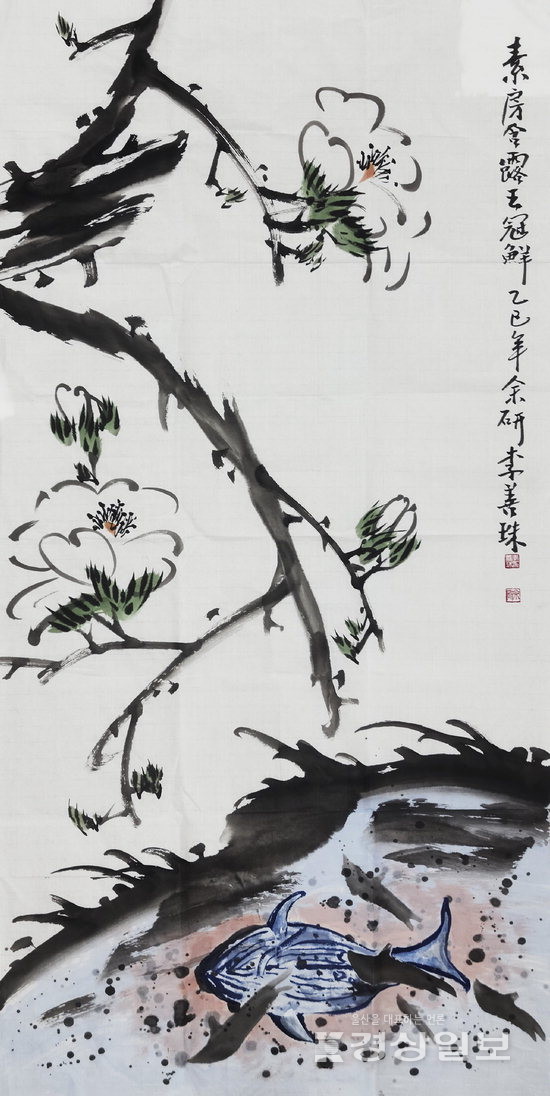 素房含露玉冠鮮 乙巳年 余硏 李善姝
울산을 대표하는 언론
경상일보